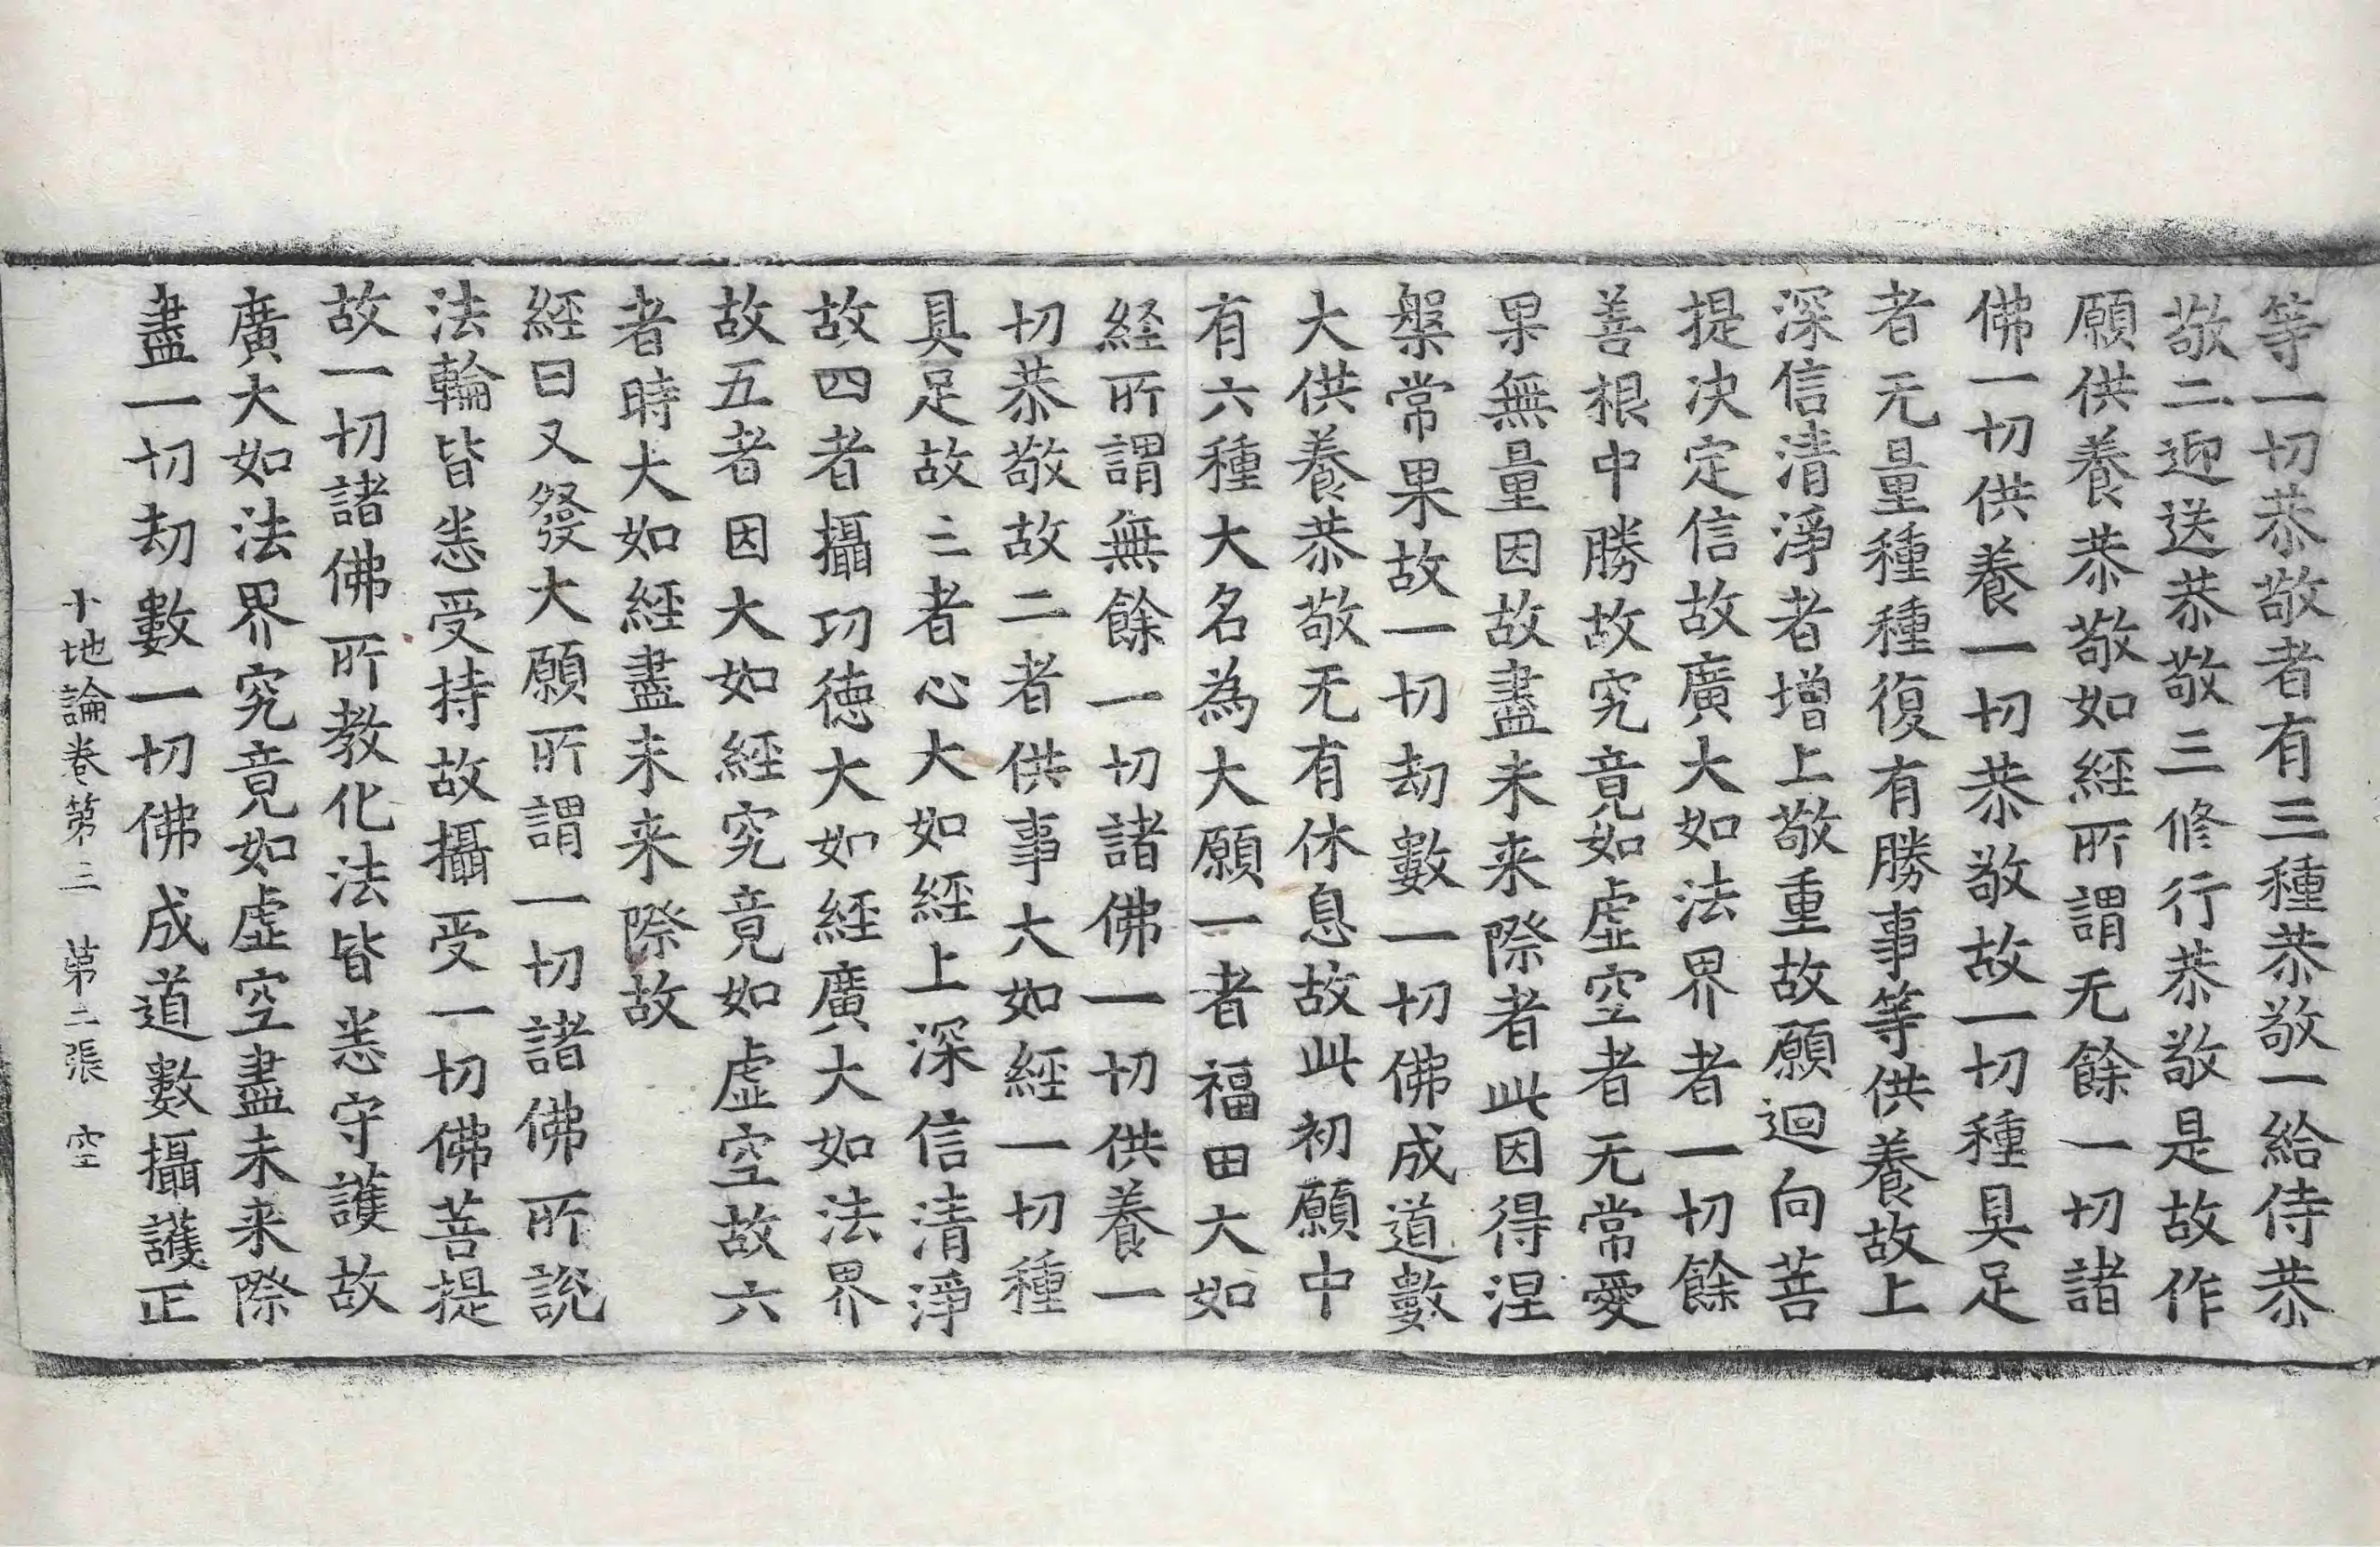 等一切恭敬者有三種恭敬一給侍恭
敬二迎送恭敬三修行恭敬是故作
願供養恭敬如經所謂无餘一切諸
佛一切供養一切恭敬故一切種具足
者无量種種復有勝事等供養故上
深信清淨者增上敬重故願迴向菩
提決定信故廣大如法界者一切餘
善根中勝故究竟如虛空者无常愛
果無量因故盡未来際者此因得涅
槃常果故一切劫數一切佛成道數
大供養恭敬无有休息故此初願中
有六種大名為大願一者福田大如
経所謂無餘一切諸佛一切供養一
切恭敬故二者供事大如經一切種
具足故三者心大如經上深信清淨
故四者攝功德大如經廣大如法界
故五者因大如經究竟如虛空故六
者時大如經盡未来際故
經曰又發大願所謂一切諸佛所說
法輪皆悉受持故攝受一切佛菩提
故一切諸佛所教化法皆悉守護故
廣大如法界究竟如虛空盡未来際
盡一切劫數一切佛成道數攝護正
十地論卷第三 苐二張 空